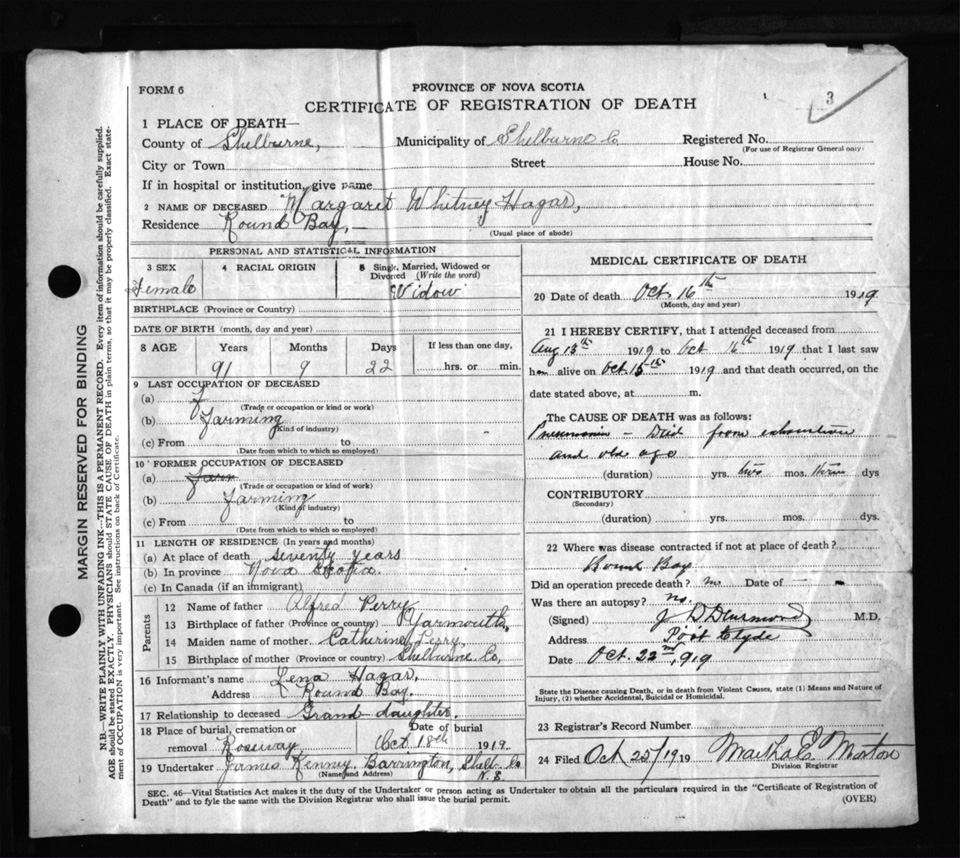 FORM 6
PROVINCE OF NOVA SCOTIA
CERTIFICATE OF REGISTRATION OF DEATH
3
1 PLACE OF DEATH—
County of Shelburne, Municipality of Shelburne Co Registered No.
(For use of Registrar General only)
City or Town Street House No.
If in hospital or institution, give name
2 NAME OF DECEASED Margaret Whitney Hagar,
Residence Round Bay,
(Usual place of abode)
PERSONAL AND STATISTICAL INFORMATION
3 SEX 4 RACIAL ORIGIN 5 Single, Married, Widowed or Divorced (Write the word)
Female Widow
BIRTHPLACE (Province or Country)
DATE OF BIRTH (month, day and year)
8 AGE Years Months Days If less than one day,
91 9 22 hrs. or min.
9 LAST OCCUPATION OF DECEASED
(a)
(Trade or occupation or kind or work)
(b) Farming
(Kind of industry)
(c) From to
(Date from which to which so employed)
10 FORMER OCCUPATION OF DECEASED
(a) Farm
(Trade or occupation or kind of work)
(b) Farming
(Kind of industry)
(c) From to
(Date from which to which so employed)
11 LENGTH OF RESIDENCE (In years and months)
(a) At place of death seventy years
(b) In province Nova Scotia
(c) In Canada (if an immigrant)
Parents
12 Name of father Alfred Perry
13 Birthplace of father (Province or country) Yarmouth,
14 Maiden name of mother Catherine Perry
15 Birthplace of mother (Province or country) Shelburne Co,
16 Informant's name Lena Hagar,
Address Round Bay.
17 Relationship to deceased Grand daughter.
18 Place of burial, cremation or Date of burial
removal Roseway Oct 18th 1919.
19 Undertaker James Kenney Barrington, Shel. Co
(Name and Address) N.S
MEDICAL CERTIFICATE OF DEATH
20 Date of death Oct 16th 1919
(Month, day and year)
21 I HEREBY CERTIFY, that I attended deceased from
Aug 13th 1919 to Oct 16th 1919 that I last saw
h alive on Oct 15th 1919 and that death occurred, on the
date stated above, at m.
The CAUSE OF DEATH was as follows:
Pneumonia - Died from exhaustion
and old age
(duration) yrs. two mos. three dys
CONTRIBUTORY
(Secondary)
(duration) yrs. mos. dys.
22 Where was disease contracted if not at place of death?
Round Bay
Did an operation precede death? no Date of
Was there an autopsy? no.
(Signed) M.D.
Address Port Clyde
Date Oct. 22nd, 1919
State the Disease causing Death, or in death from Violent Causes, state (1) Means and Nature of
Injury, (2) whether Accidental, Suicidal or Homicidal.
23 Registrar's Record Number
24 Filed Oct 25/19 19 Martha E. Morton
Division Registrar
SEC. 46—Vital Statistics Act makes it the duty of the Undertaker or person acting as Undertaker to obtain all the particulars required in the "Certificate of Registration of
Death" and to fyle the same with the Division Registrar who shall issue the burial permit. (OVER)
MARGIN RESERVED FOR BINDING
N.B—WRITE PLAINLY WITH UNFADING INK—THIS IS A PERMANENT RECORD. Every item of information should be carefully supplied.
AGE should be stated EXACTLY. PHYSICIANS should STATE CAUSE OF DEATH in plain terms, so that it may be properly classified. Exact state-
ment of OCCUPATION is very important. See instructions on back of Certificate.